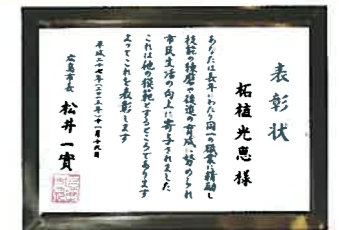 表彰状
柘植光恵様
あなたは長年にわたり同一の職業に精励し
技能の錬磨や後進の育成に努められ
市民生活の向上に寄与されました
これは他の模範とするところであります
よってこれを表彰します
平成二十七年(二〇一五年)十一月十九日
広島市長 松井一實